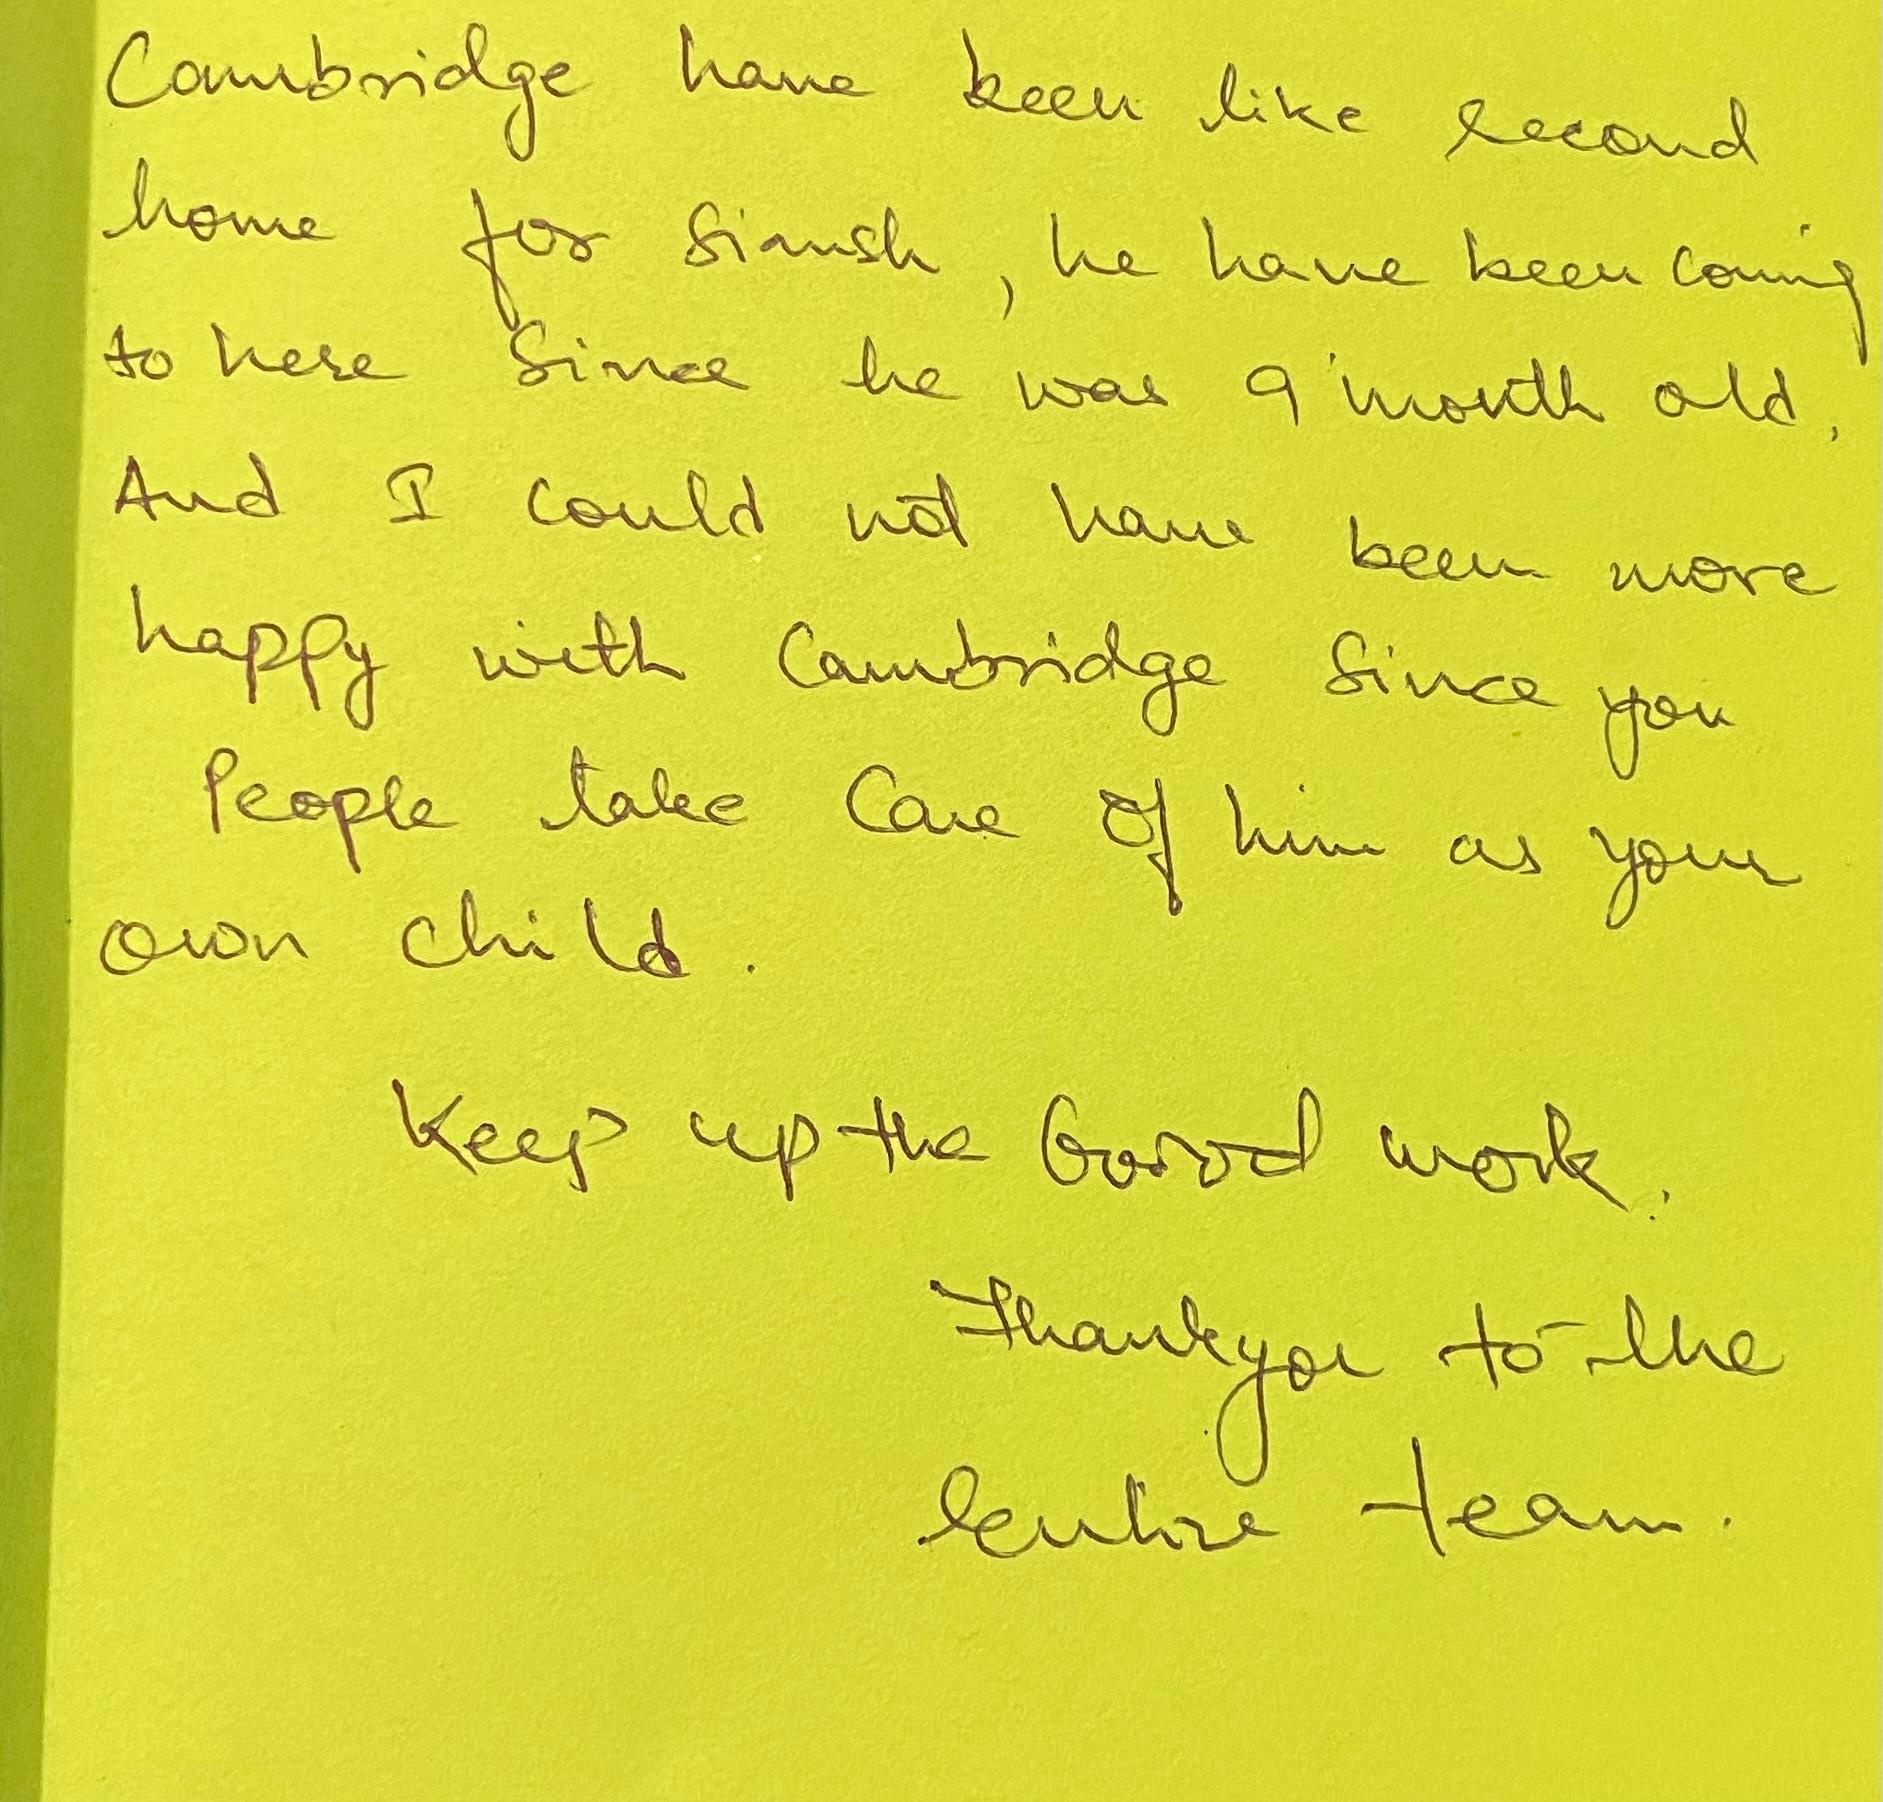 Cambridge have been like second
home for Siansh, he have been coming
to here Since he was 9 month old,
And I could not have been more
happy with Cambridge Since you
People take Care of him as your
own child.
Keep up the Good work.
Thankyou to the
entire team.